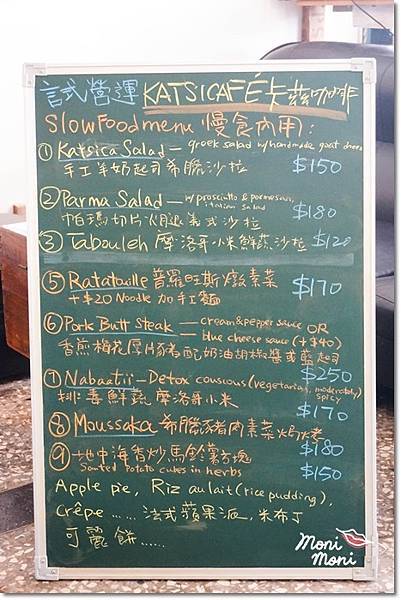 試營運 KATSICAFÉ卡茲咖啡
Slowfoodmenu 慢食內用:
① Katsica Salad — greek salad w/handmade goat cheese
手工羊奶起司希臘沙拉 $150
② Parma Salad — w/prosciutto & parmesan, italian salad
帕瑪切片火腿義式沙拉 $180
③ Tabouleh 摩洛哥小米鮮蔬沙拉 $120
⑤ Ratatouille 普羅旺斯燉素菜 $170
+$20 Noodle 加手工麵
⑥ Pork Butt Steak — cream&pepper sauce OR
blue cheese sauce (+$40)
香煎梅花厚片豬配奶油胡椒醬或藍起司
$250
⑦ Nabaatii — Detox couscous (vegetarian, moderately spicy)
排毒鮮蔬摩洛哥小米 $170
⑧ Moussaka 希臘豬肉素菜焗烤 $180
⑨ 地中海香炒馬鈴薯方塊 $150
Sauted Potato cubes in herbs
Apple pie, Riz au lait (rice pudding),
Crêpe ...... 法式蘋果派, 米布丁
可麗餅......
Moni
Moni